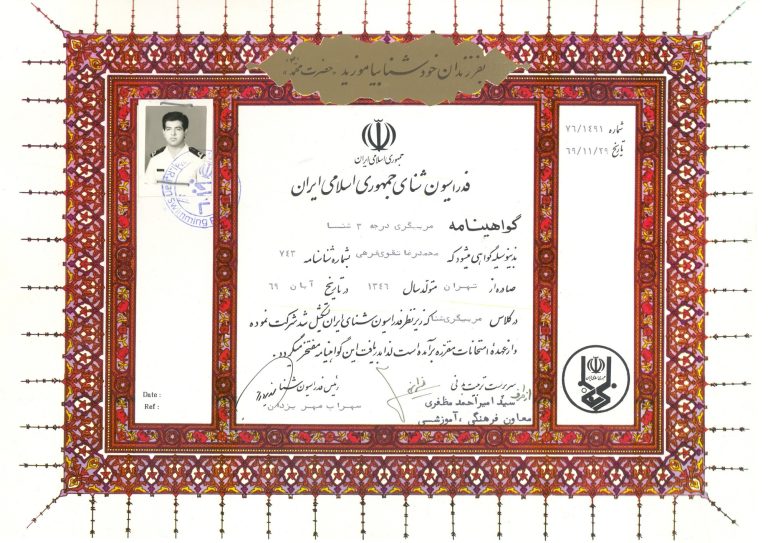 بفرزندان خود شنا بیاموزید «حضرت محمد ص»
شماره ۷۶/۱۴۹۱
تاریخ ۶۹/۱۱/۲۹
جمهوری اسلامی ایران
فدراسیون شنای جمهوری اسلامی ایران
گواهینامه مربیگری درجه ۳ شنا
بدینوسیله گواهی میشود که محمدرضا تقوی فرهی بشماره شناسنامه ۷۴۳
صادره از تهران متولد سال ۱۳۴۶ در تاریخ آبان ۶۹
در کلاس مربیگری شنا که زیر نظر فدراسیون شنای ایران تشکیل شد شرکت نموده
و از عهدهٔ امتحانات مقرره برآمده است لذا بدریافت این گواهینامه مفتخر میگردد.
سرپرست تربیت بدنی
رئیس فدراسیون شنا
سید امیر احمد مظفری
سهراب مهر یزدان
معاون فرهنگی ، آموزشی
Date :
Ref :